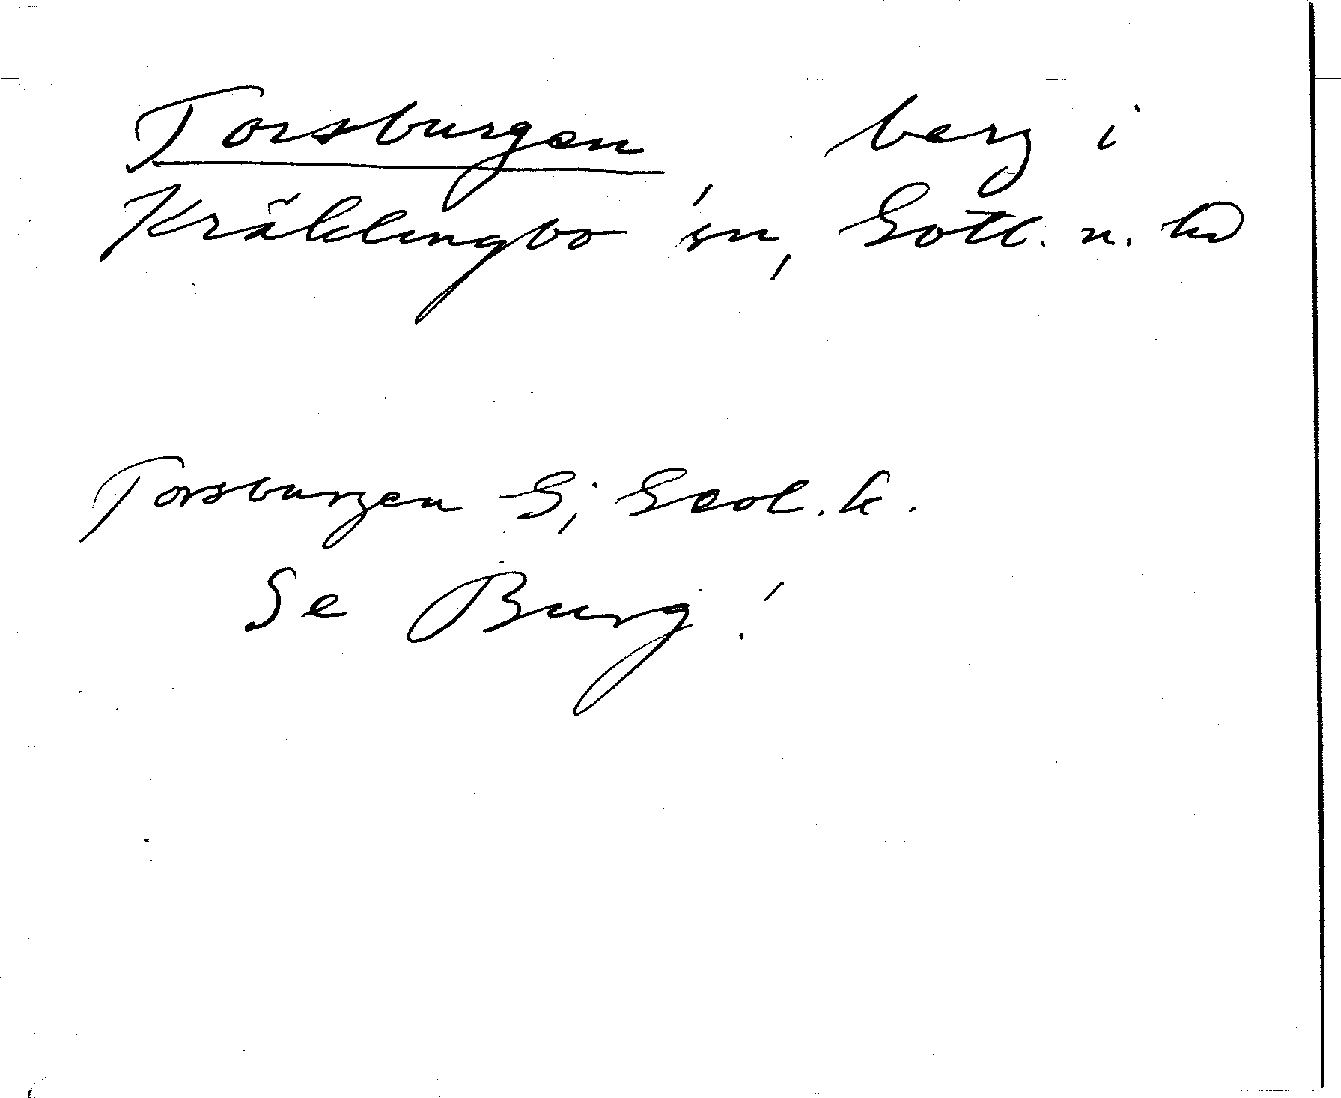 Torsburgen, berg i
Kräklingbo sn, Gotl. n. hd
Torsburgen G; Geol. k.
Se Burg!